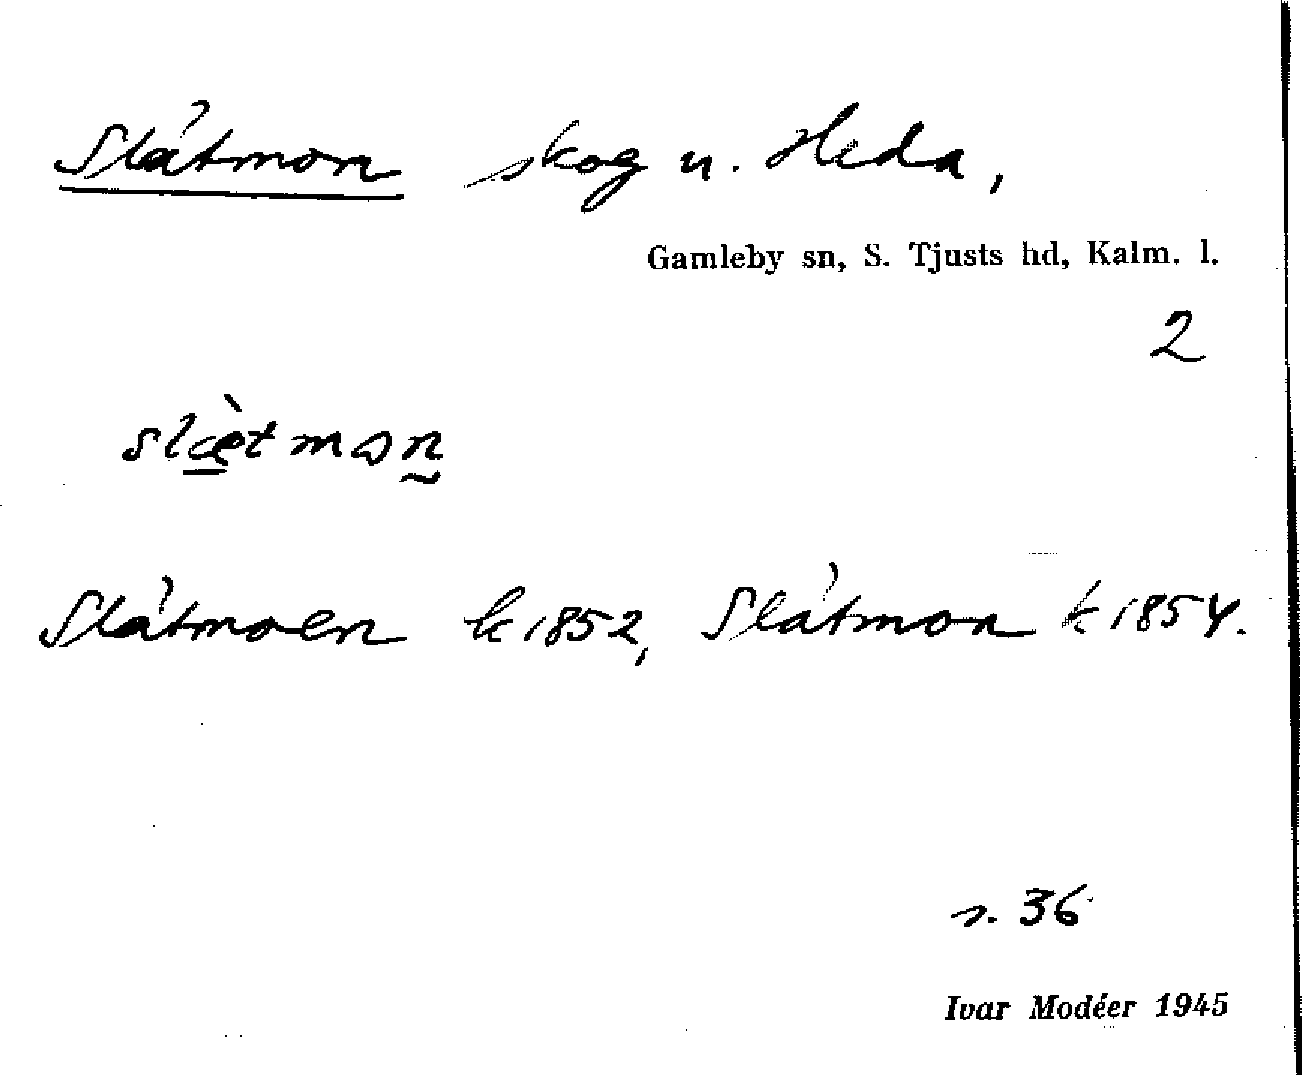 Slätmon skog u. Heda,
Gamleby sn, S. Tjusts hd, Kalm. l.
2
slæ̀tmon
Slätmoen k 1852, Slätmon k 1854.
s. 36
Ivar Modéer 1945